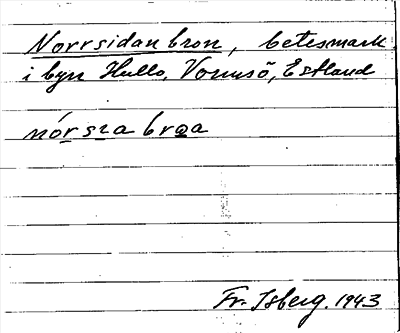 Norrsidan bron, betesmark
i byn Hullo, Vormsö, Estland
nórsza broa
Fr. Isberg. 1943